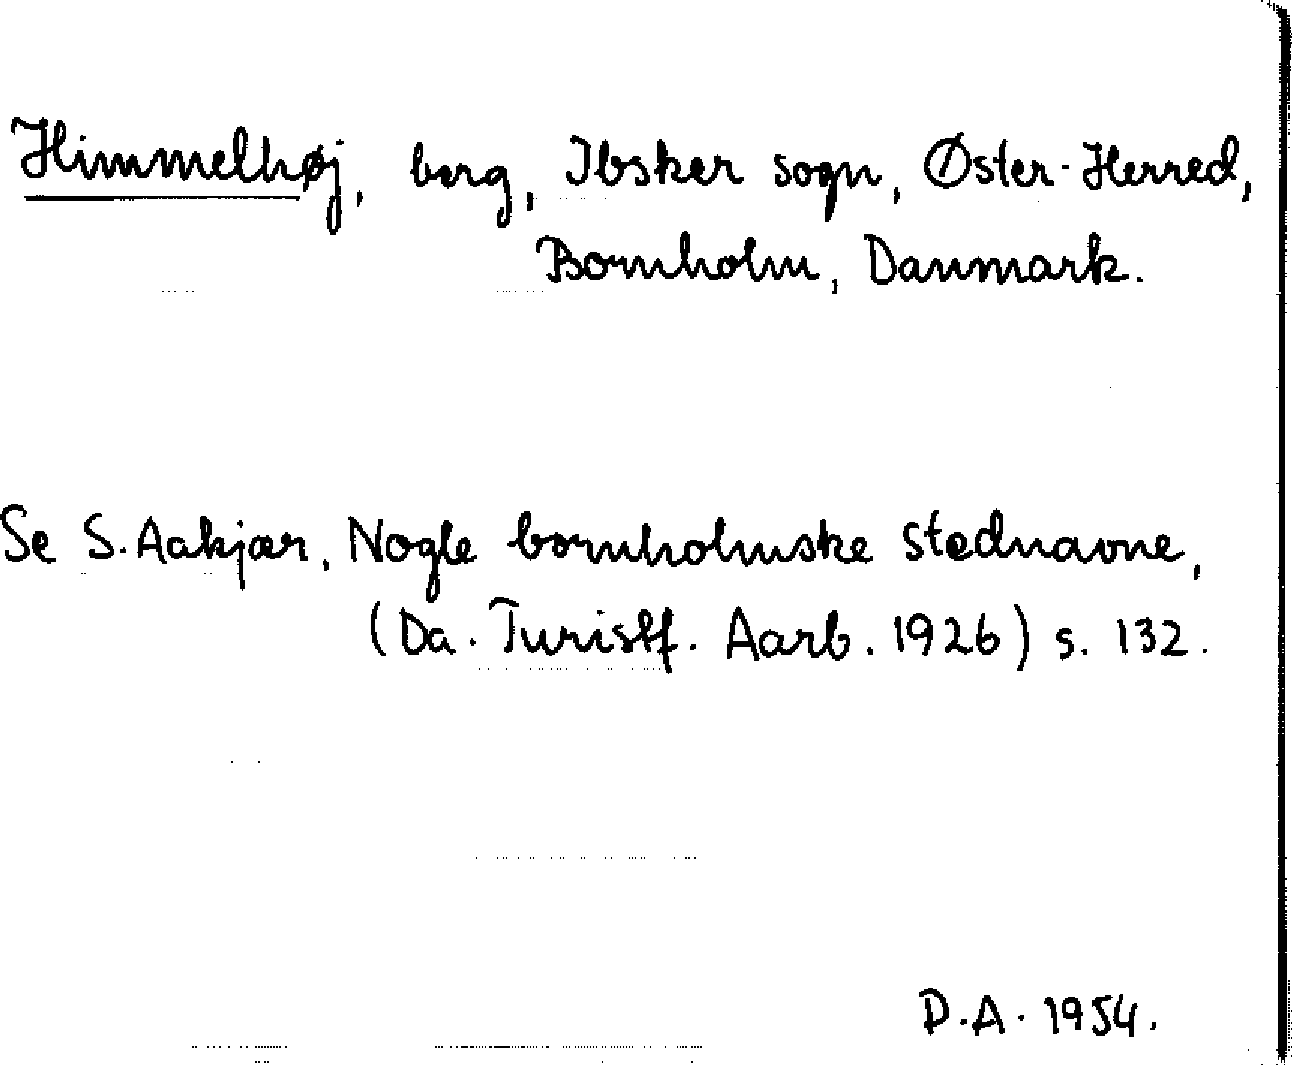 Himmelhøj, berg, Ibsker sogn, Øster-Herred,
Bornholm, Danmark.
Se S. Aakjær, Nogle bornholmske stednavne,
(Da. Turistf. Aarb. 1926) s. 132.
D.A. 1954.